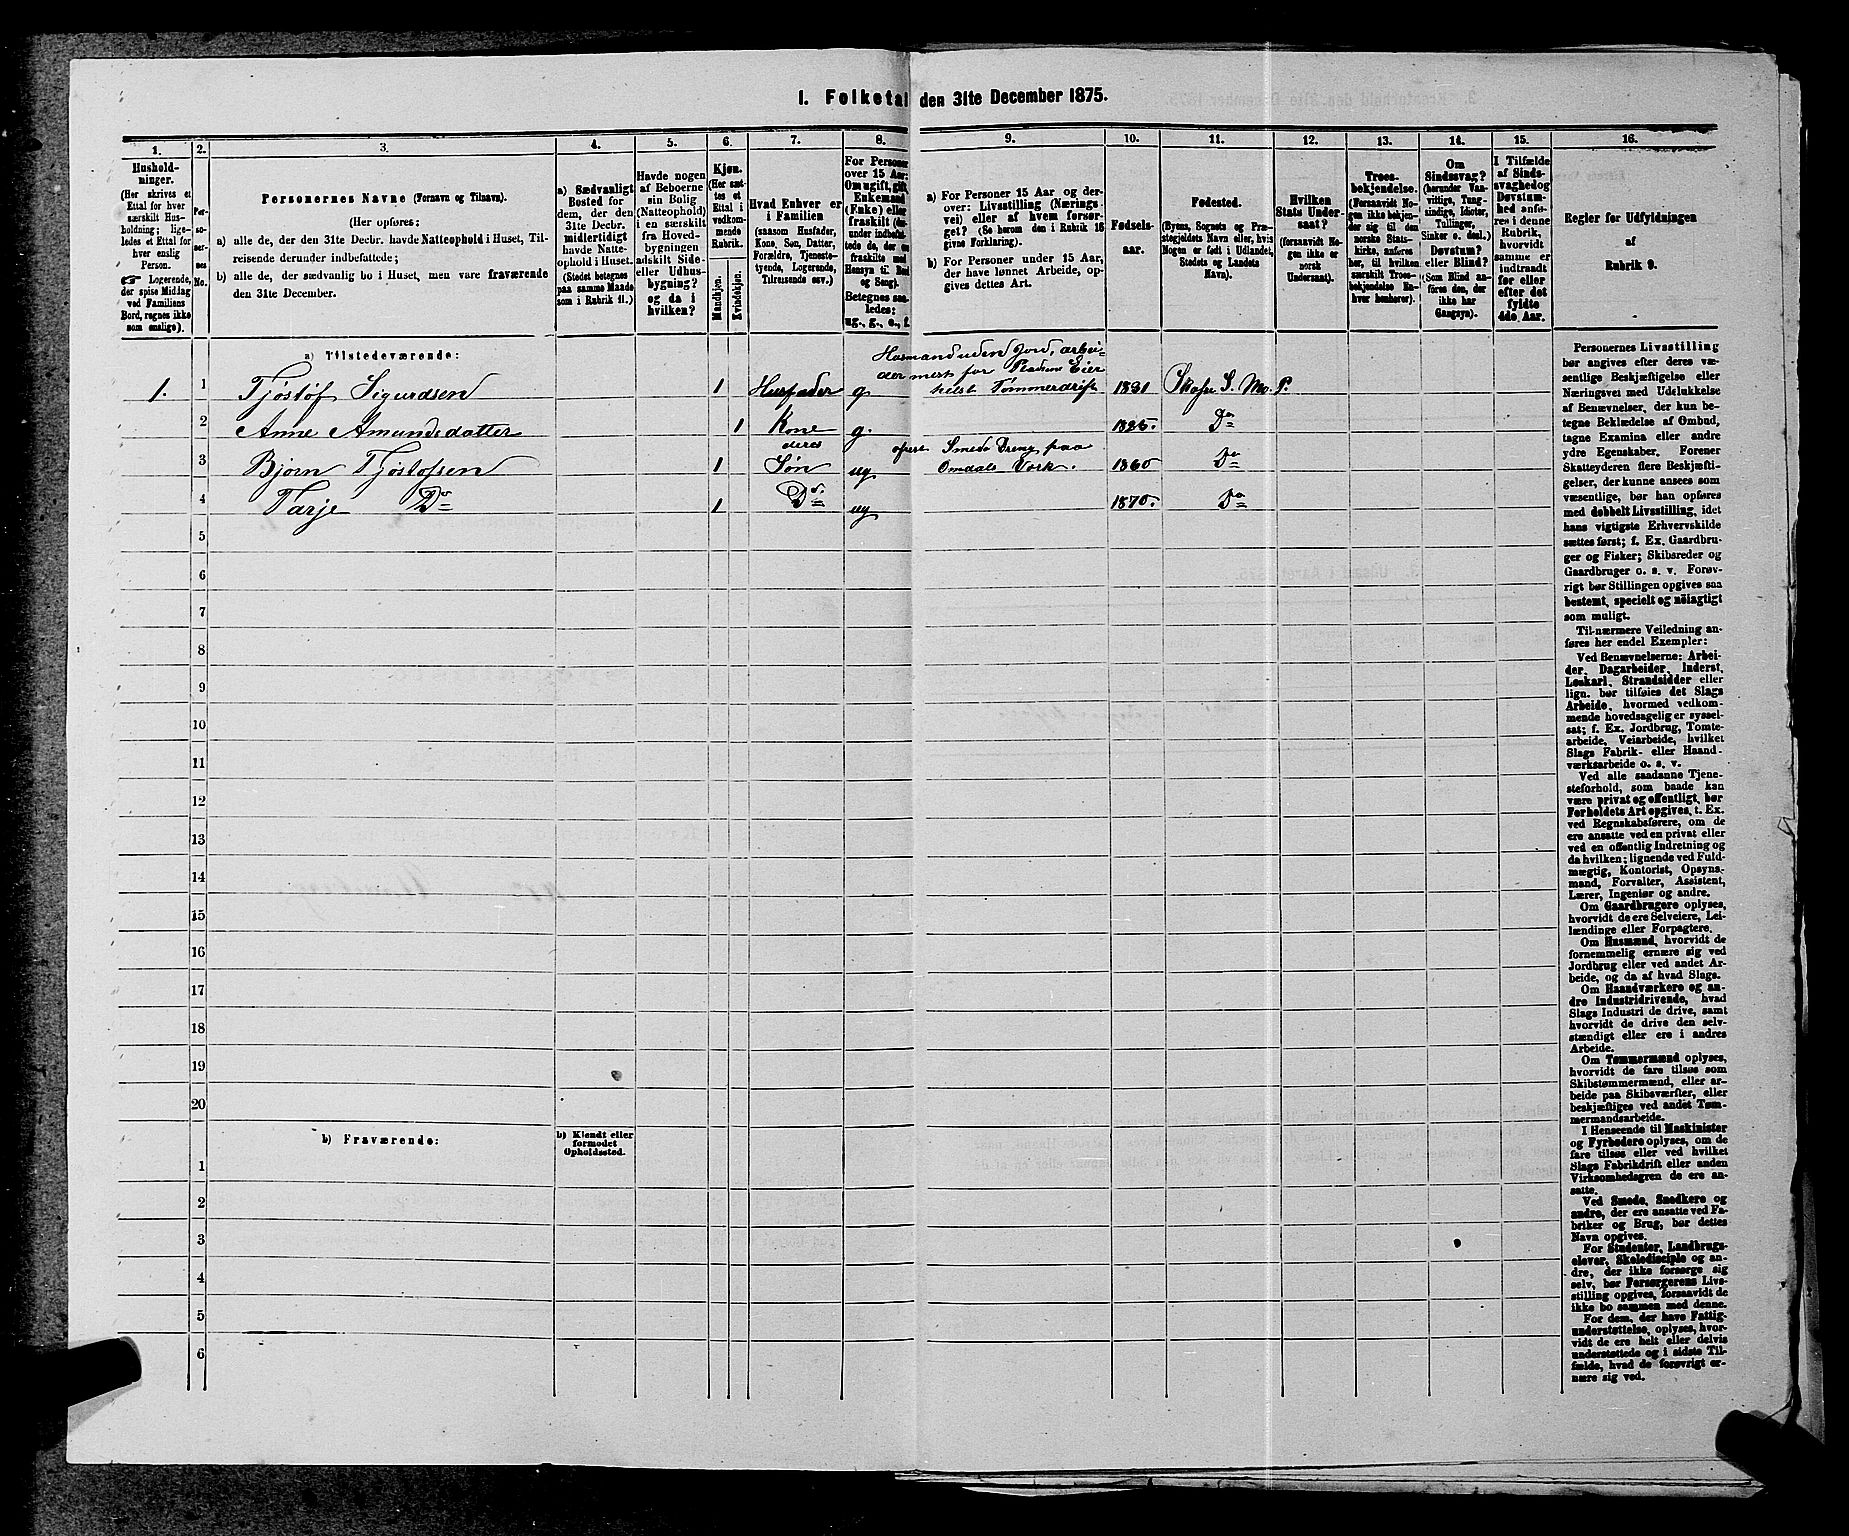 1. Folketal den 31te December 1875.
1. 2. 3. 4. 5. 6. 7. 8. 9. 10. 11. 12. 13. 14. 15. 16.
Hushold-
ninger.
(Her skrives et
Ettal for hver
særskilt Hus-
holdning; lige-
ledes et Ettal for
hver enslig
Person.
☞ Logerende,
der spise Middag
ved Familiens
Bord, regnes ikke
som enslige).
Per-
so-
ner-
nes
No.
Personernes Navne (Fornavn og Tilnavn).
(Her opføres:
a) alle de, der den 31te Decbr. havde Natteophold i Huset, Til-
reisende derunder indbefattede;
b) alle de, der sædvanlig bo i Huset, men vare fraværende
den 31te December.
a) Sædvanligt
Bosted for
dem, der den
31te Decbr.
midlertidigt
havde Natte-
ophold i Huset.
(Stedet betegnes
paa samme Maade
som i Rubrik 11.)
Havde nogen
af Beboerne
sin Bolig
(Natteophold)
i en særskilt
fra Hoved-
bygningen
adskilt Side-
eller Udhus-
bygning?
og da i
hvilken?
Kjøn.
(Her sæt-
tes et
Ettal i
vedkom-
mende
Rubrik.
Mandkjøn.
Kvindekjøn.
Hvad Enhver er
i Familien
(saasom Husfader,
Kone, Søn, Datter,
Forældre, Tjeneste-
tyende, Logerende,
Tilreisende osv.)
For Personer
over 15 Aar:
Om ugift, gift,
Enkemand
(Enke) eller
fraskilt (der-
under indbefat-
tede de, der ere
fraskilte med
Hensyn til Bord
og Seng).
Betegnes saa-
ledes:
ug., g., e., f.
a) For Personer 15 Aar og der-
over: Livsstilling (Nærings-
vei) eller af hvem forsør-
get? (Se herom den i Rubrik 16
givne Forklaring).
b) For Personer under 15 Aar,
der have lønnet Arbeide, op-
gives dettes Art.
Fødsels-
aar.
Fødested.
(Byens, Sognets og Præ-
stegjeldets Navn eller, hvis
Nogen er født i Udlandet,
Stedets og Landets
Navn).
Hvilken
Stats Under-
saat?
(forsaavidt No-
gen ikke er
norsk
Undersaat).
Troes-
bekjendelse.
(Forsaavidt No-
gen ikke bekjen-
der sig til den
norske Stats-
kirke, anføres
her, til hvilken
særskilt Troes-
bekjendelse En-
hver henhører).
Om
Sindssvag?
(herunder Van-
vittige, Tung-
sindige, Idioter,
Tullinger,
Sinker o. desl.)
Døvstum?
eller Blind?
(Som Blind an-
føres den, der
ikke har
Gangsyn).
I Tilfælde
af Sinds-
svaghed og
Døvstum-
hed anfø-
res i denne
Rubrik,
hvorvidt
samme er
indtraadt
før eller
efter det
fyldte
4de Aar.
Regler for Udfyldningen
af
Rubrik 9.
a) Tilstedeværende:
Husmand uden Jord, arbei-
der mest for Pladsens Eier
1. 1 Tjøstof Sigurdsen 1 Husfader g helst Tømmerdrift 1831 Skafse S. Mo P.
2 Anne Amundsdatter 1 Kone g. 1826. Do
3 Bjørn Tjøstofsen 1 deres Søn ug Smede Dreng paa Omdals Værk. 1860 Do
4 Tarje Do 1 Do ug 1870. Do
5
6
7
8
9
10
11
12
13
14
15
16
17
18
19
20
b) Fraværende:
b) Kjendt eller
formodet
Opholdssted.
1
2
3
4
5
6
Personernes Livsstilling
bør angives efter deres væ-
sentlige Beskjæftigelse eller
Næringsvei med Udelukkelse
af Benævnelser, der kun be-
tegne Beklædelse af Ombud,
tagne Examina eller andre
ydre Egenskaber. Forener
Skatteyderen flere Beskjæfti-
gelser, der kunne ansees som
væsentlige, bør han opføres
med dobbelt Livsstilling, idet
hans vigtigste Erhvervskilde
sættes først; f. Ex. Gaardbru-
ger og Fisker; Skibsreder og
Gaardbruger o. s. v. Forøv-
rigt bør Stillingen opgives saa
bestemt, specielt og nöiagtigt
som muligt.
Til nærmere Veiledning an-
føres her endel Exempler:
Ved Benævnelserne: Arbei-
der, Dagarbeider, Inderst,
Løskarl, Strandsidder eller
lign. bør tilføies det Slags
Arbeide, hvormed vedkom-
mende hovedsagelig er syssel-
sat; f. Ex. Jordbrug, Tomte-
arbeide, Veiarbeide, hvilket
Slags Fabrik- eller Haand-
værksarbeide o. s. v.
Ved alle saadanne Tjene-
steforhold, som baade kan
være privat og offentligt, bør
Forholdets Art opgives, t. Ex.
ved Regnskabsførere, om de
ere ansatte ved en privat eller
ved en offentlig Indretning og
da hvilken; lignende ved Fuld-
mægtig, Kontorist, Opsyns-
mand, Forvalter, Assistent,
Lærer, Ingeniør og andre.
Om Gaardbrugere oplyses,
hvorvidt de ere Selveiere, Lei-
lændinge eller Forpagtere.
Om Husmænd, hvorvidt de
fornemmelig ernære sig ved
Jordbrug eller ved andet Ar-
beide, og da af hvad Slags.
Om Haandværkere og an-
dre Industridrivende, hvad
Slags Industri de drive, samt
hvorvidt de drive den selv-
stændigt eller ere i andres
Arbeide.
Om Tømmermænd oplyses,
hvorvidt de fare tilsøs som
Skibstømmermænd, eller ar-
beide paa Skibsværfter, eller
beskjæftiges ved andet Tøm-
mermandsarbeide.
I Henseende til Maskinister
og Fyrbødere oplyses, om de
fare tilsøs eller ved hvilket
Slags Fabrikdrift eller anden
Virksomhedsgren de ere an-
satte.
Ved Smede, Snedkere og
andre, der ere ansatte ved Fa-
briker og Brug, bør dettes
Navn opgives.
For Studenter, Landbrugs-
elever, Skoledisciple og an-
dre, der ikke forsørge sig
selv, bør Forsørgerens Livs-
stilling opgives, forsaavidt de
ikke bo sammen med denne.
For dem, der have Fattig-
understøttelse, oplyses, hvor-
vidt de ere helt eller delvis
understøttede og i sidste Til-
fælde, hvad de forøvrigt er-
nære sig ved.